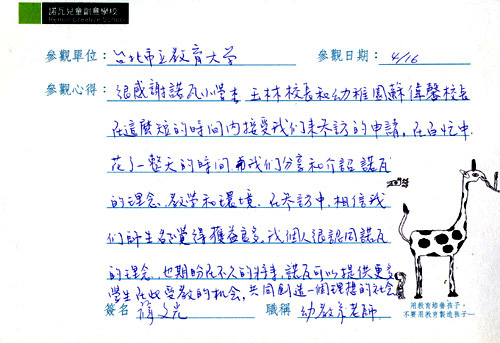 諾瓦兒童創意學校
參觀單位：台北市立教育大學 參觀日期：4/16
參觀心得：很感謝諾瓦小學李玉林校長和幼稚園蘇偉馨校長
在這麼短的時間內接受我們來參訪的申請，在百忙中
花了一整天的時間與我們分享和介紹諾瓦
的理念、教學和環境．在參訪中，相信我
們師生都覺得獲益良多，我個人很認同諾瓦
的理念，也期盼在不久的將來，諾瓦可以提供更多
學生在此受教的机会，共同創造一個理想的社会
簽名 職稱 幼教系老師
用教育培養孩子，
不要用教育製造孩子—